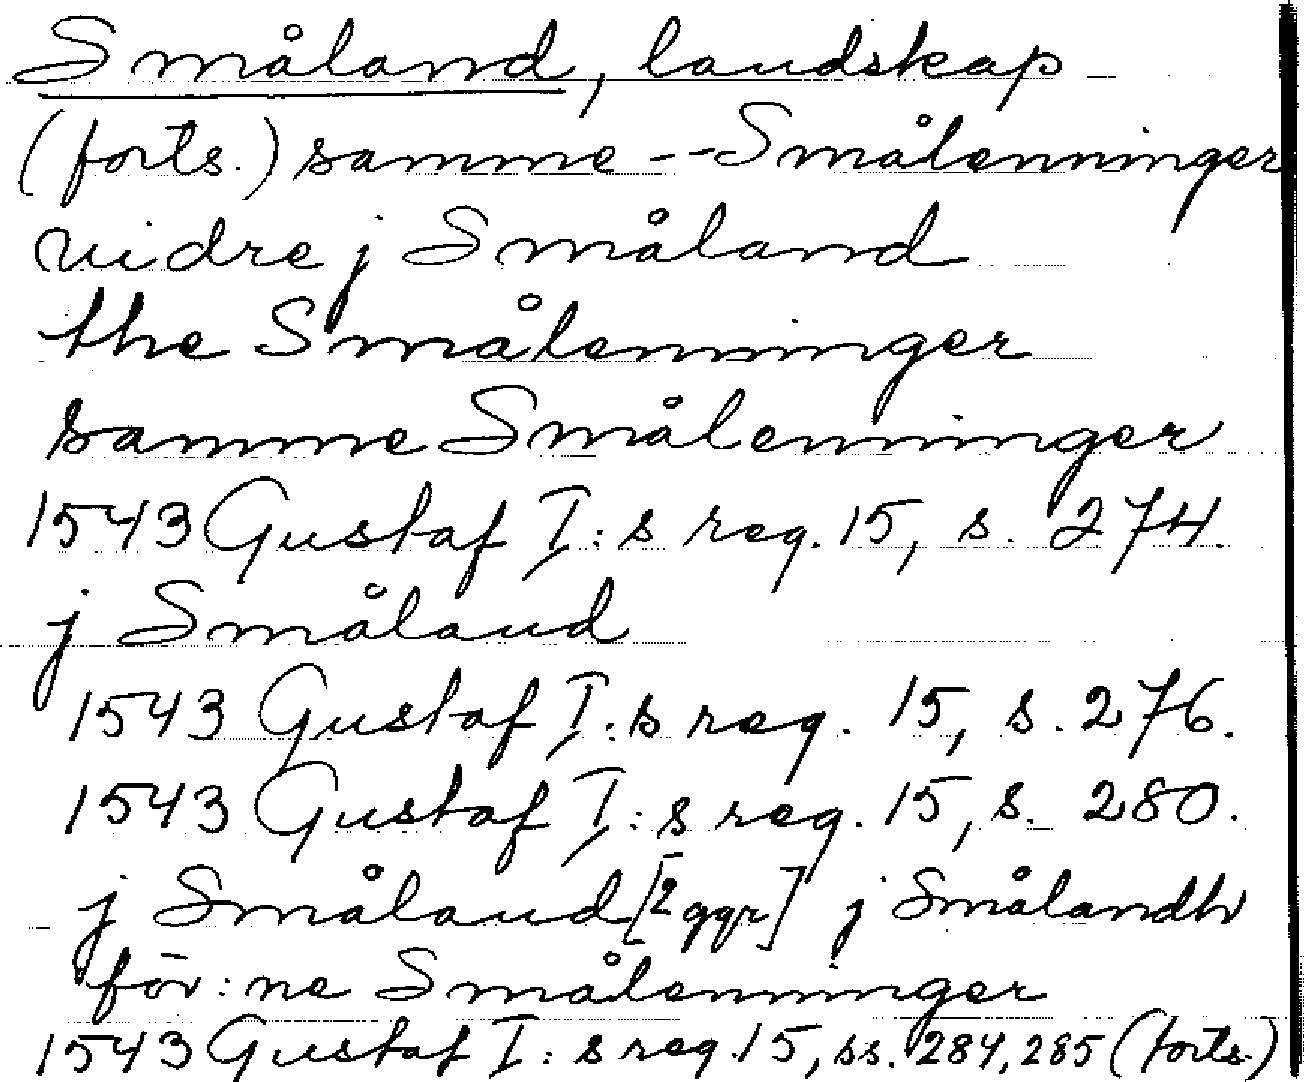 Småland, landskap
(forts.) samme -- Smålenninger
nidre j Småland
the Smålenninger
samme Smålenninger
1543 Gustaf I:s reg. 15, s. 274.
j Småland
1543 Gustaf I:s reg. 15, s. 276.
1543 Gustaf I:s reg. 15, s. 280.
j Småland [2 ggr] j Smålandh
för:ne Smålenninger
1543 Gustaf I:s reg. 15, ss. 284, 285 (forts.)